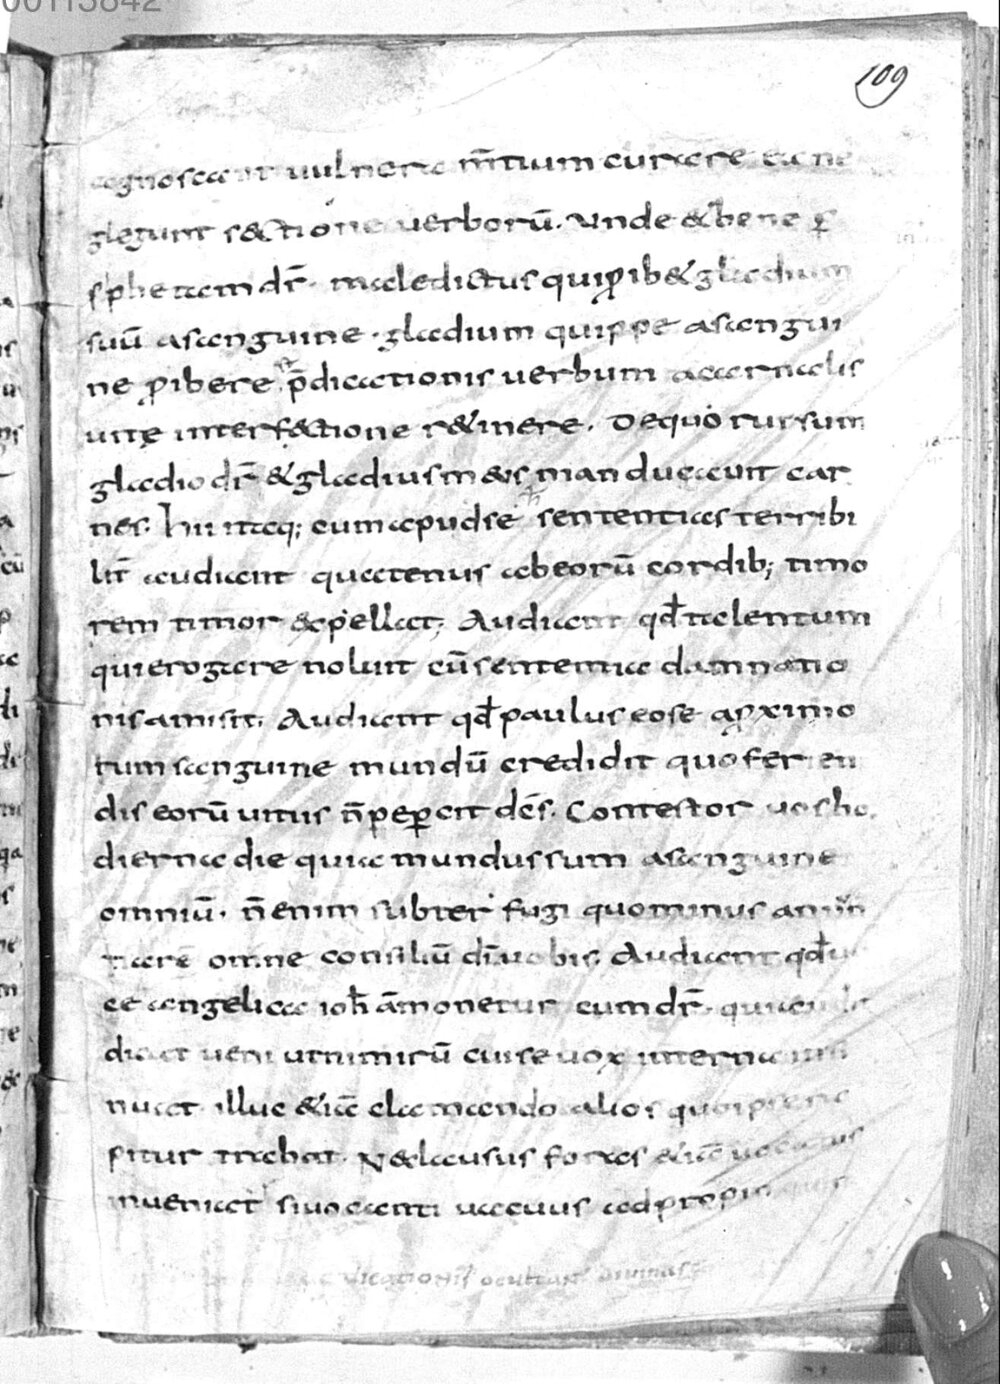 00115842
109
agnoscant uulnera m̄tium curare &a ne
glegunt s&tione uerborū. Unde & bene ꝑ
s phetam dr̄. maledictus qui ꝓib& gladium
suū a sanguine. gladium quippe a sangui
ne ꝓibere .st. p̄dicationis uerbum a carnalis
uitę interf&tione r&inere. De quo rursum
gladio dr̄ & gladius meus manducauit car
nes. hii itaq; cum apud se sententias terribi
lit̄ audiant quatenus ab eorū cordib; timo
rem timor exꝑellat. Audiant qđ talentum
qui erogare noluit cū sententia damnatio
nis amisit. Audiant qđ paulus eo se a ꝓximo
rum sanguine mundū credidit quo ferien
dis eorū uitiis n̄ peꝑcit. Contestor uos ho
dierna die quia mundus sum a sanguine
omniū. n̄ enim subter fugi quominus annun
tiarē omne consiliū dī uobis. Audiant qđ uo
ce angelica ioħ āmonetur cum dr̄. qui audit
dicat ueni ut nimirū cui se uox interna insi
nuat illuc &iā clamando alios quo ipse ra
pitur trahat. Ne clausus fores &iā uocatus
inueniat si uocanti uacuus adpropinquat